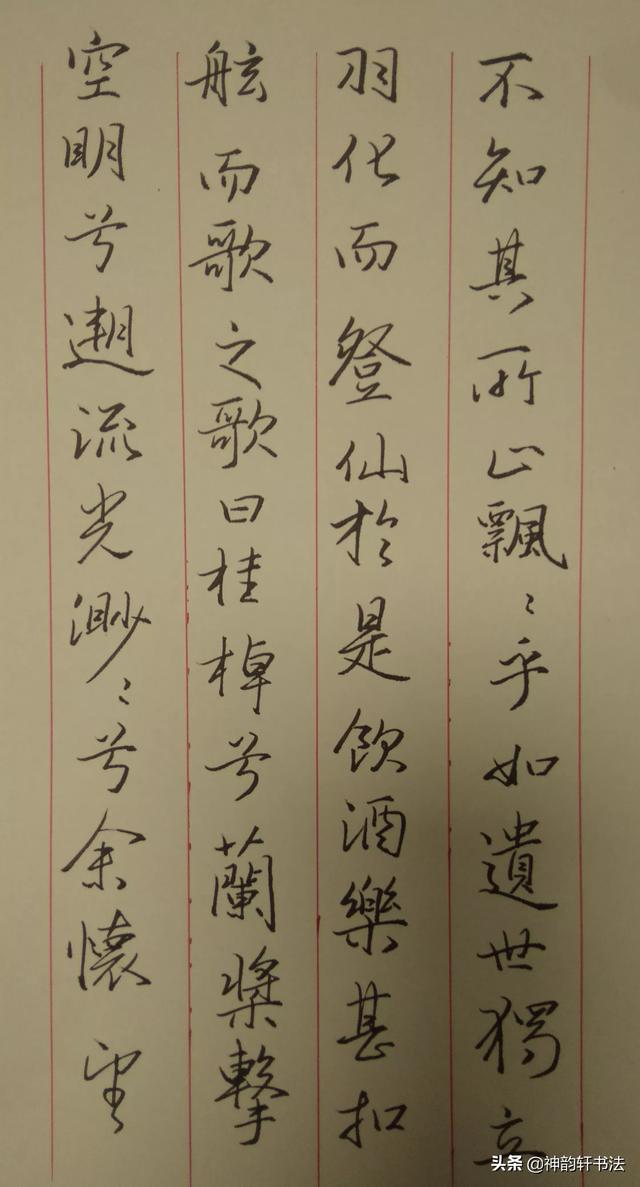 不知其所止飄〻乎如遺世獨立
羽化而登仙於是飲酒樂甚扣
舷而歌之歌曰桂棹兮蘭槳擊
空明兮遡流光渺〻兮余懷望
头条@神韵轩书法